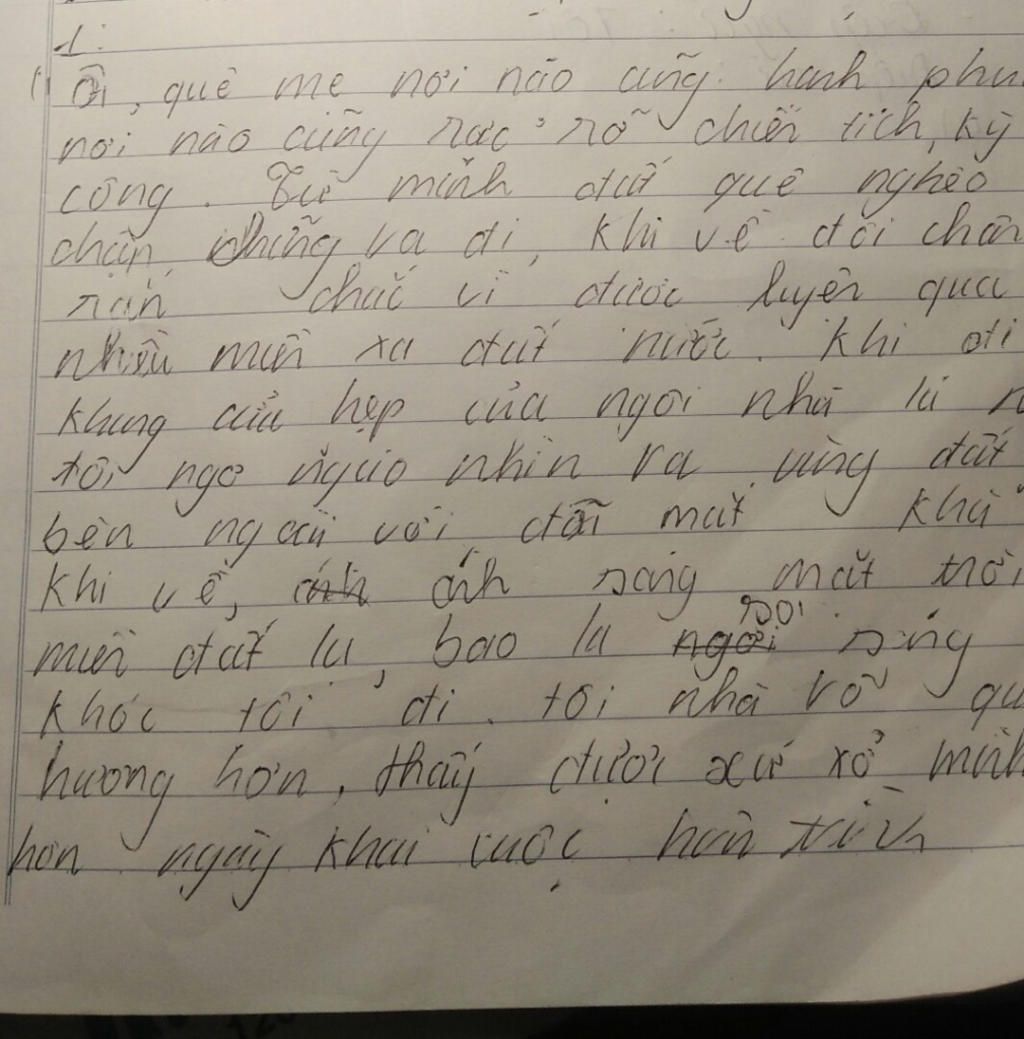 1:
Ôi, quê mẹ nơi nào cũng hạnh phu
nơi nào cũng rực rỡ chiến tích, kỳ
công. Từ mảnh đất quê nghèo
chân, những ra đi, khi về đôi chân
rắn chắc vì được luyện qua
nhiều miền xa đất nước. Khi đi
khung cửa hẹp của ngôi nhà lá
tôi ngơ ngáo nhìn ra vùng đất
bên ngoài với đôi mắt khà
khi về, ánh sáng mặt trời
miền đất lạ, bao la soi sáng
khóc tôi đi. tôi nhà rõ qu
hương hơn, thấy được xứ xở mình
hơn ngày khai cuộc hàn